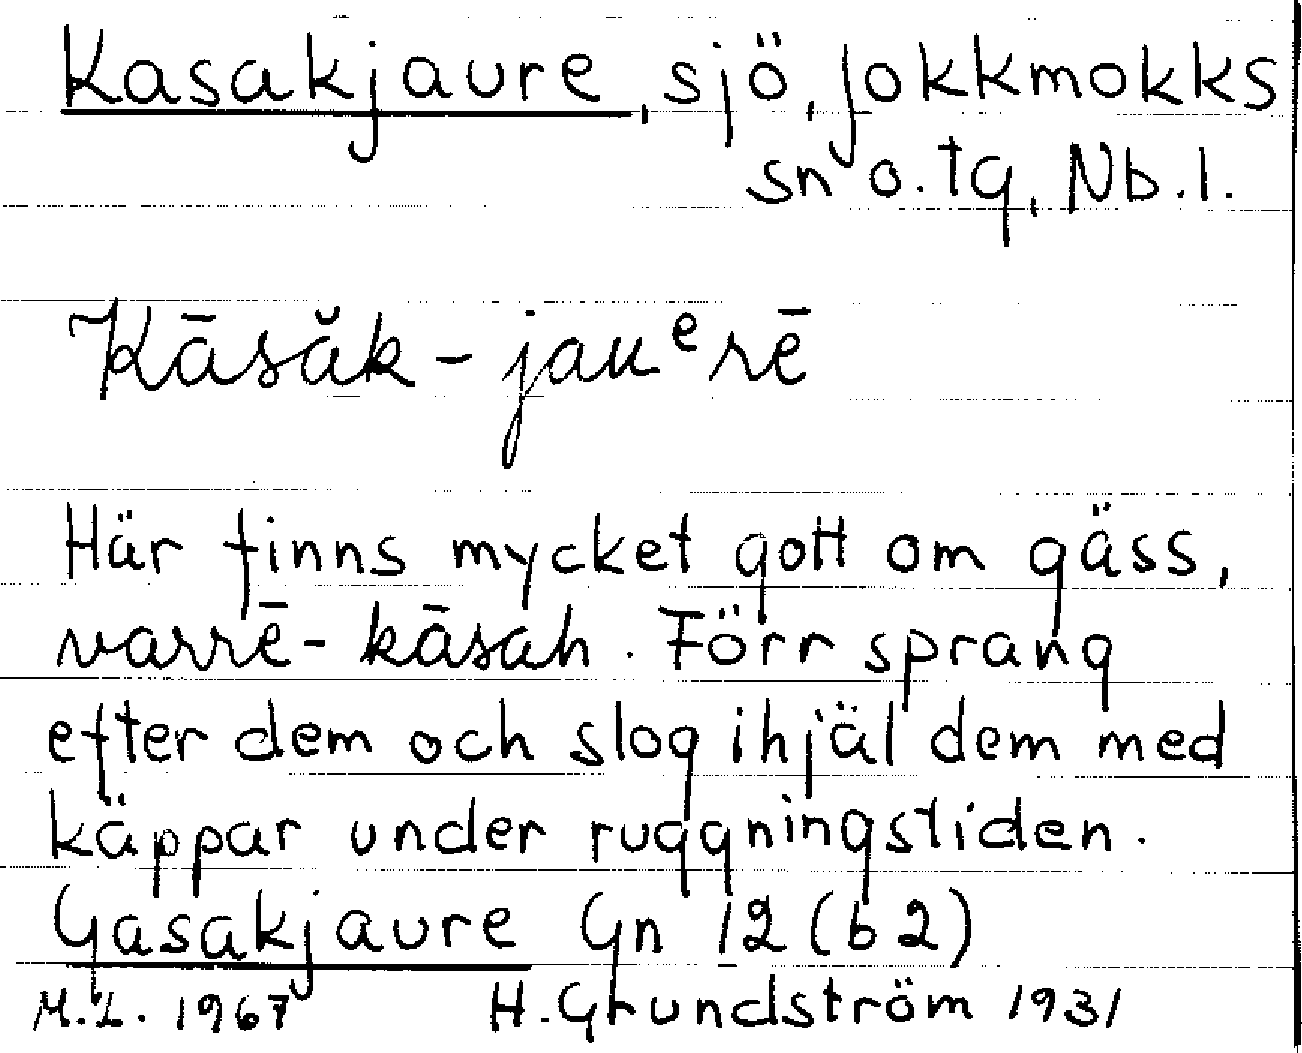 Kasakjaure, sjö, Jokkmokks
sn o. tg, Nb.l.
Kāsăk-jauᵉrē
Här finns mycket gott om gäss,
varrē-kāsah. Förr sprang
efter dem och slog ihjäl dem med
käppar under ruggningstiden.
Gasakjaure Gn 12 (b2)
M.L. 1967 H. Grundström 1931